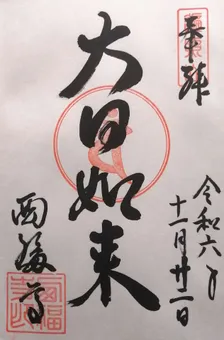 奉拝
令和六年
十一月廿二日
大日如来
西福寺